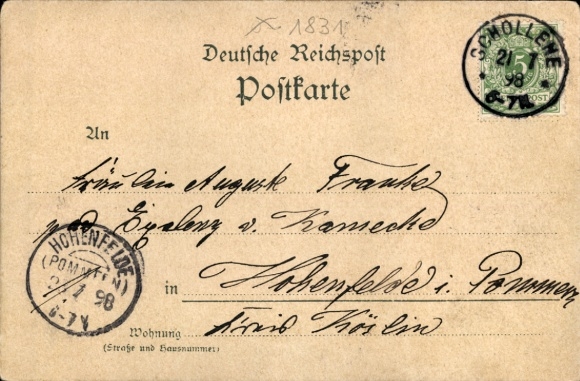 x 1831
Deutsche Reichspost
Postkarte
SCHOLLENE
21 7
98
6-7N.
5
POST
An
Fräulein Auguste Franke
v. Kamecke
HOHENFELDE
(POMMERN)
7 98
in Hohenfelde i. Pommern
Kreis Köslin
Wohnung
(Straße und Hausnummer)